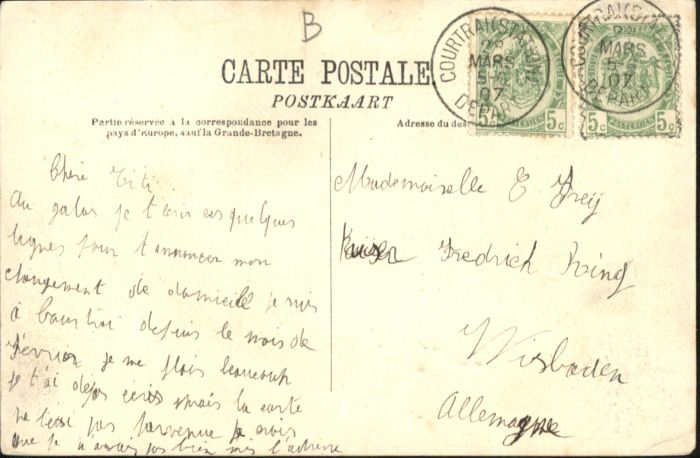 B
CARTE POSTALE
POSTKAART
Partie réservée à la correspondance pour les
pays d'Europe, sauf la Grande-Bretagne.
Adresse du des
COURTRAI (STATION)
MARS
07
DEPART
5c POSTERIJEN 5c
COURTRAI (STATION)
MARS
07
DEPART
5c POSTERIJEN 5c
Mademoiselle E Frey
Kaiser Fredrich Ring
Wisbaden
Allemagne
Chère Titi
Au galop je t'écris ces quelques
lignes pour t'annoncer mon
changement de domicile je suis
à Courtrai depuis le mois de
Février je me plais beaucoup
je t'ai déjà écris mais la carte
ne t'est pas parvenue je crois
que je n'avais pas bien mis l'adresse